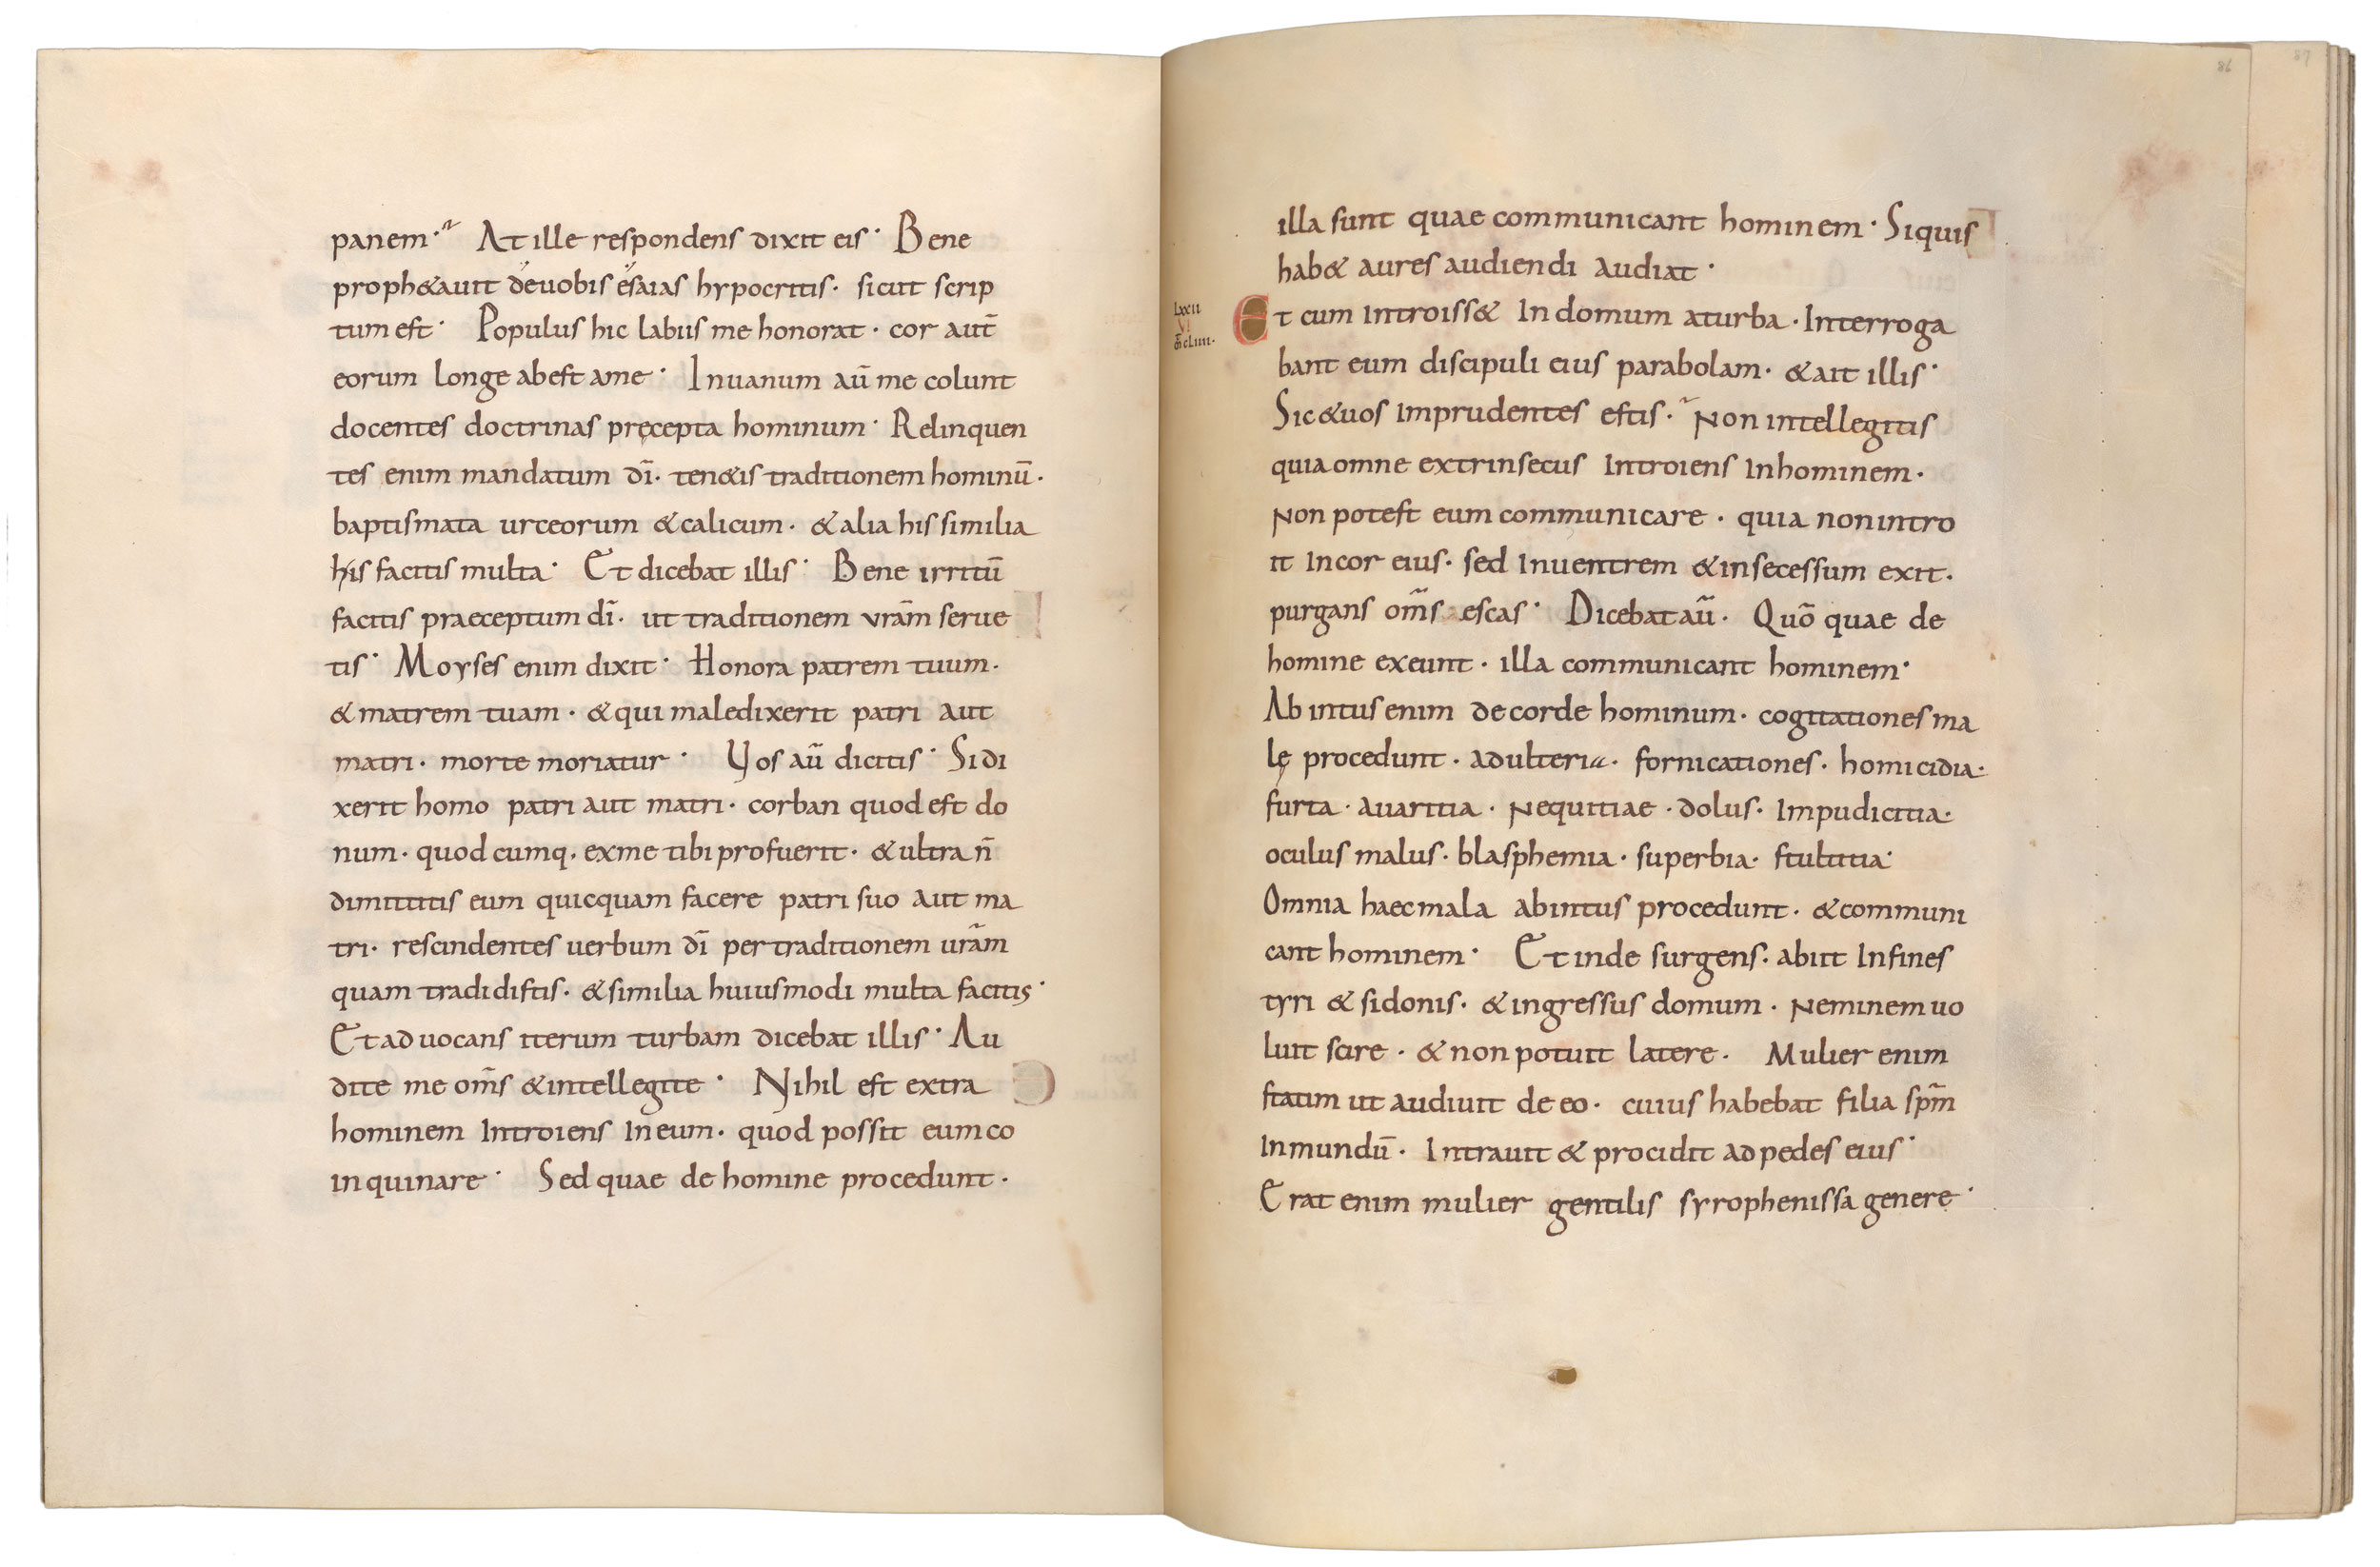 panem· At ille respondens dixit eis· Bene
proph&auit deuobis esaias hypocritis· sicut scrip
tum est· Populus hic labiis me honorat· cor aut̄
eorum longe abest ame· Inuanum aū me colunt
docentes doctrinas pręcepta hominum· Relinquen
tes enim mandatum dī· ten&is traditionem hominū·
baptismata urceorum & calicum· & alia his similia
his facitis multa· Et dicebat illis· Bene irritū
facitis praeceptum dī· ut traditionem vrām serue
tis· Moyses enim dixit· Honora patrem tuum·
& matrem tuam· & qui maledixerit patri aut
matri· morte moriatur· Vos aū dicitis· Si di
xerit homo patri aut matri· corban quod est do
num· quod cumq· exme tibi profuerit· & ultra n̄
dimittitis eum quicquam facere patri suo aut ma
tri· rescindentes uerbum dī per traditionem urām
quam tradidistis· & similia huiusmodi multa facitis·
Et aduocans iterum turbam dicebat illis· Au
dite me om̄s & intellegite· Nihil est extra
hominem Introiens In eum· quod possit eum co
inquinare· Sed quae de homine procedunt·
86
87
illa sunt quae communicant hominem· Siquis
hab& aures audiendi audiat·
lxxii
VI
Et cum Introiss& In domum aturba· Interroga
bant eum discipuli eius parabolam· & ait illis·
Sic & uos Imprudentes estis· Non intellegitis
quia omne extrinsecus Introiens Inhominem·
Non potest eum communicare· quia non intro
it Incor eius· sed Inuentrem & insecessum exit·
purgans om̄s escas· Dicebat aū· Quō quae de
homine exeunt· illa communicant hominem·
Ab intus enim de corde hominum· cogitationes ma
lę procedunt· adulteria· fornicationes· homicidia·
furta· auaritia· Nequitiae· dolus· Impudicitia·
oculus malus· blasphemia· superbia· stultitia·
Omnia haec mala abintus procedunt· & communi
cant hominem· Et inde surgens· abiit Infines
tyri & sidonis· & ingressus domum· Neminem uo
luit scire· & non potuit latere· Mulier enim
statim ut audiuit de eo· cuius habebat filia sp̄m
Inmundū· Intrauit & procidit ad pedes eius·
Erat enim mulier gentilis syrophenissa genere·